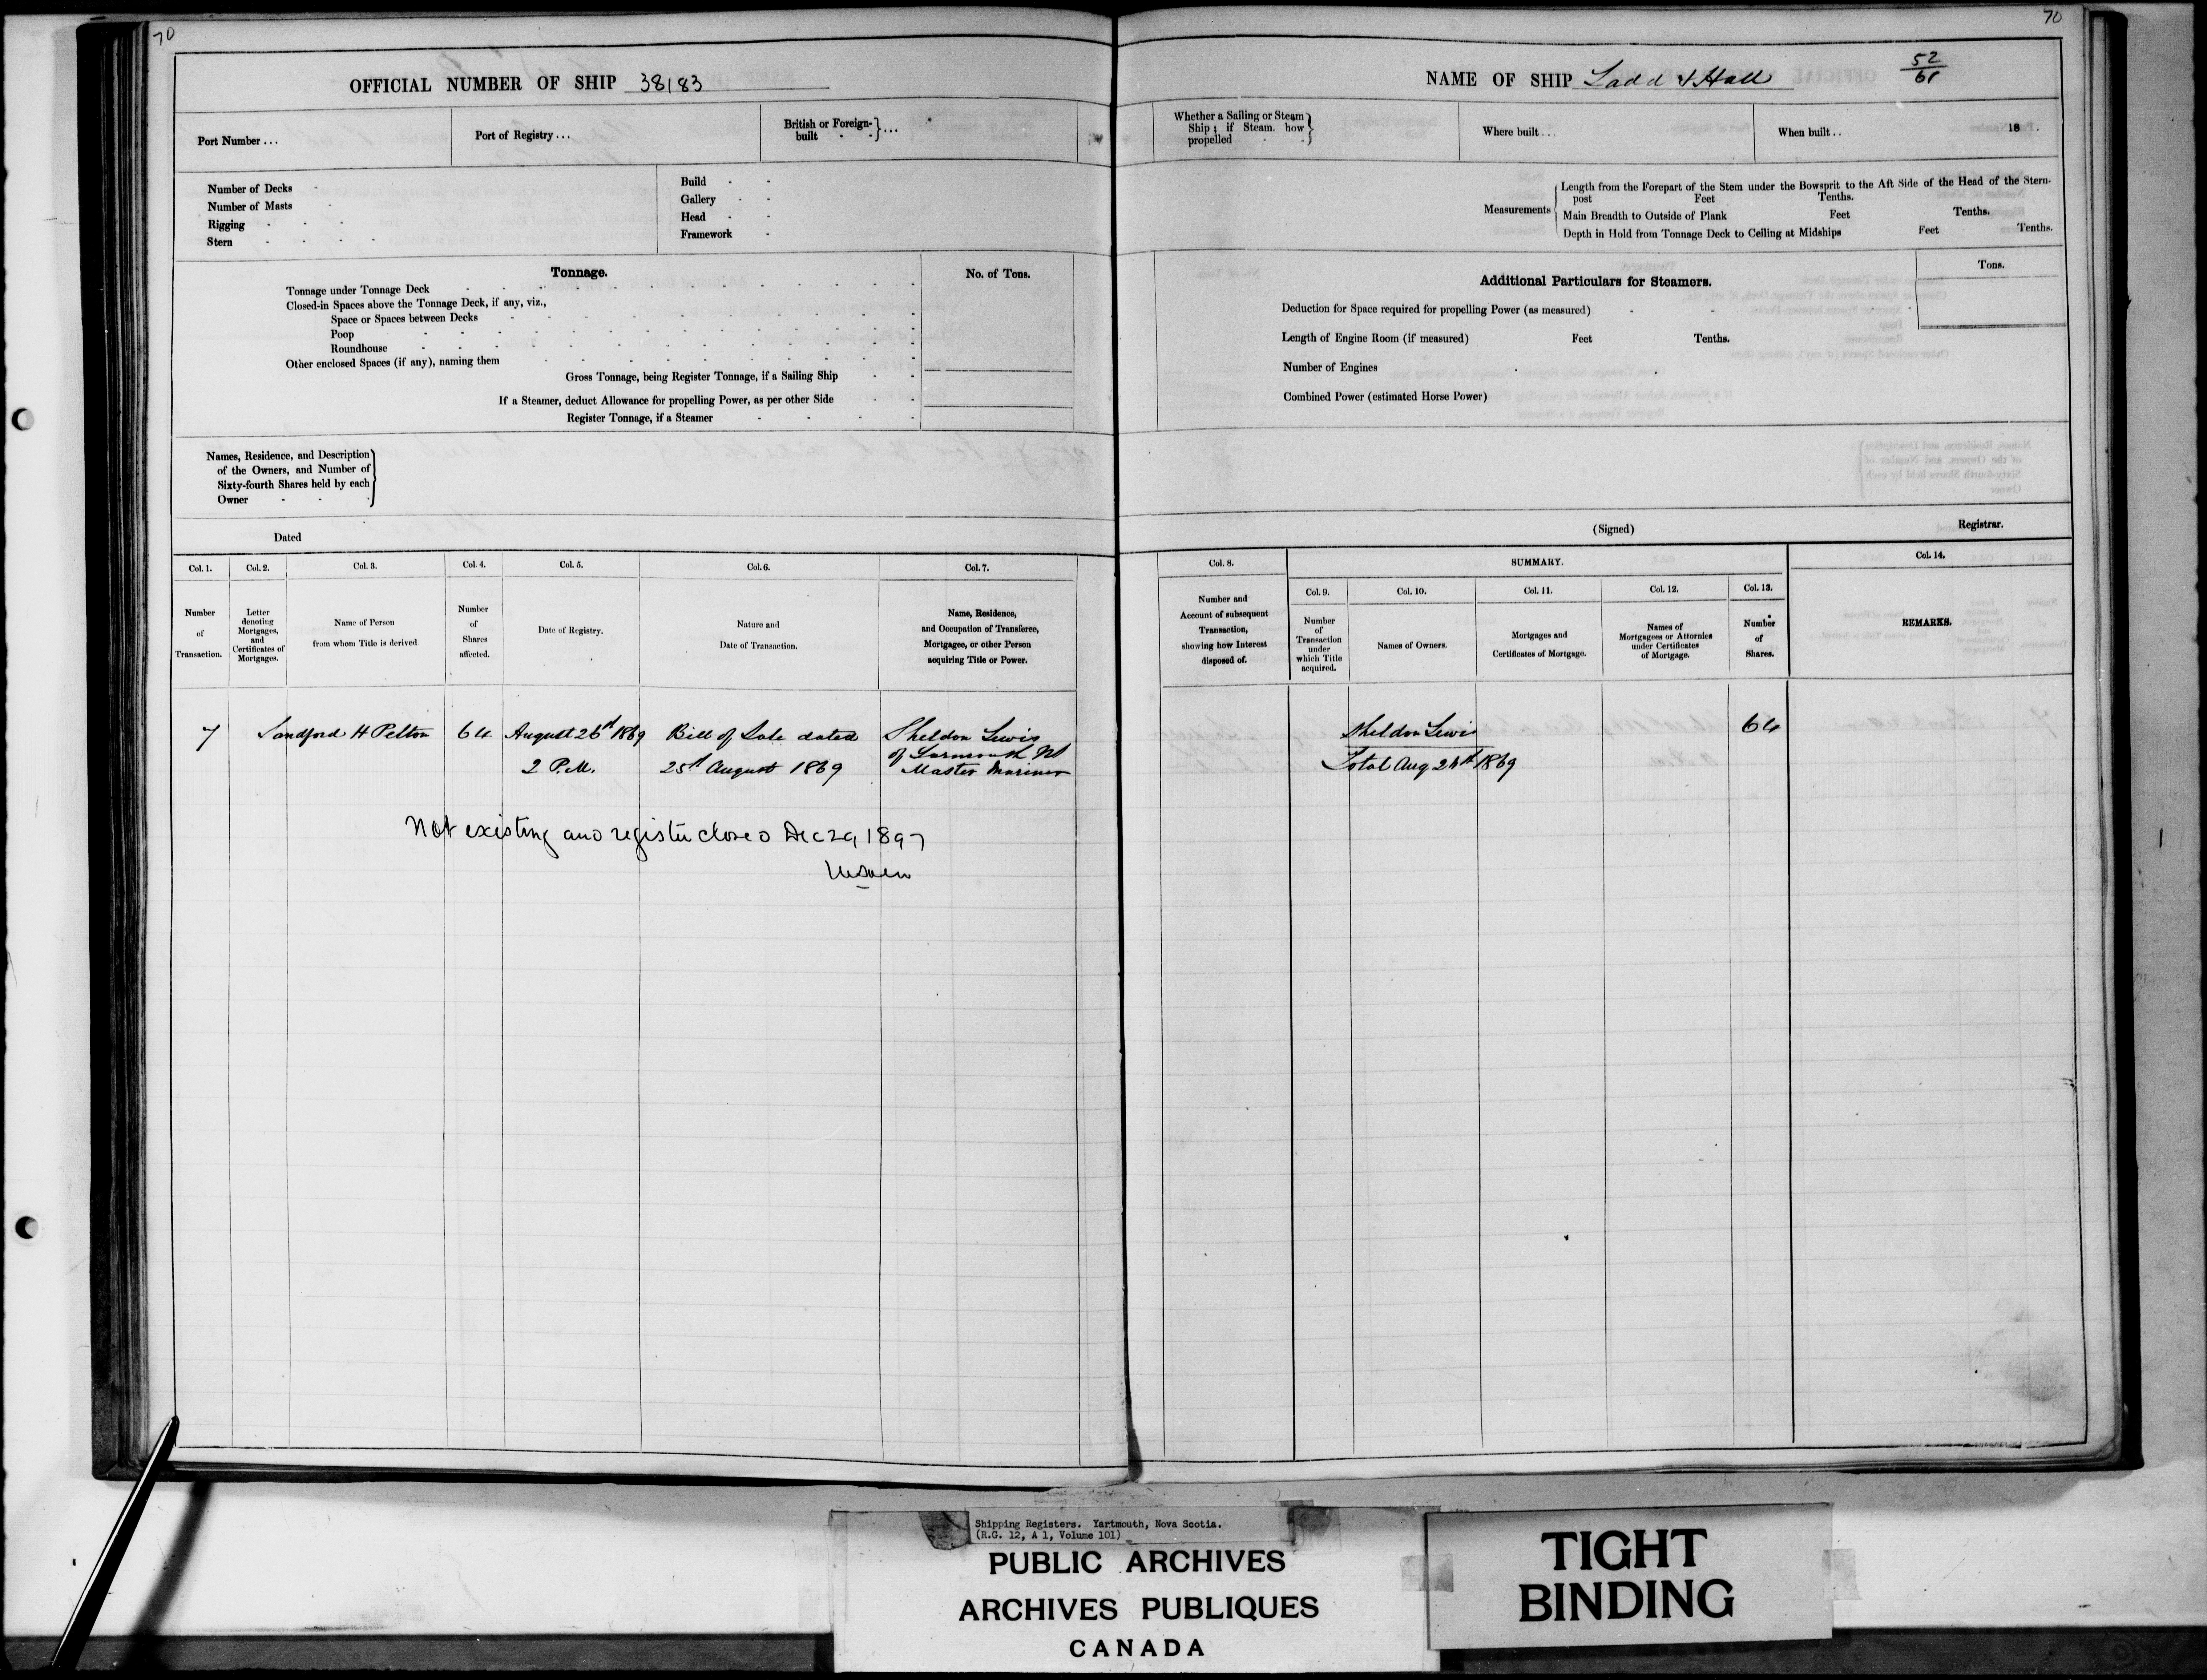 70
70
OFFICIAL NUMBER OF SHIP 38183
Port Number ...
Port of Registry ...
British or Foreign-built - - } ...
Number of Decks
Number of Masts
Rigging
Stern
Build
Gallery
Head
Framework
Tonnage.
No. of Tons.
Tonnage under Tonnage Deck
Closed-in Spaces above the Tonnage Deck, if any, viz.,
Space or Spaces between Decks
Poop
Roundhouse
Other enclosed Spaces (if any), naming them
Gross Tonnage, being Register Tonnage, if a Sailing Ship
If a Steamer, deduct Allowance for propelling Power, as per other Side
Register Tonnage, if a Steamer
Names, Residence, and Description
of the Owners, and Number of
Sixty-fourth Shares held by each
Owner
Dated
NAME OF SHIP Ladd & Hall
52/61
Whether a Sailing or Steam
Ship; if Steam. how
propelled
Where built ...
When built ..
18 .
Measurements
Length from the Forepart of the Stem under the Bowsprit to the Aft Side of the Head of the Stern-
post Feet Tenths.
Main Breadth to Outside of Plank Feet Tenths.
Depth in Hold from Tonnage Deck to Ceiling at Midships Feet Tenths.
Additional Particulars for Steamers.
Tons.
Deduction for Space required for propelling Power (as measured)
Length of Engine Room (if measured) Feet Tenths.
Number of Engines
Combined Power (estimated Horse Power)
(Signed) Registrar.
Col. 1.
Number
of
Transaction.
Col. 2.
Letter
denoting
Mortgages,
and
Certificates of
Mortgages.
Col. 3.
Name of Person
from whom Title is derived
Col. 4.
Number
of
Shares
affected.
Col. 5.
Date of Registry.
Col. 6.
Nature and
Date of Transaction.
Col. 7.
Name, Residence,
and Occupation of Transferee,
Mortgagee, or other Person
acquiring Title or Power.
Col. 8.
Number and
Account of subsequent
Transaction,
showing how Interest
disposed of.
SUMMARY.
Col. 9.
Number
of
Transaction
under
which Title
acquired.
Col. 10.
Names of Owners.
Col. 11.
Mortgages and
Certificates of Mortgage.
Col. 12.
Names of
Mortgagees or Attornies
under Certificates
of Mortgage.
Col. 13.
Number
of
Shares.
Col. 14.
REMARKS.
7 Sandford H Pelton 64 August 26th 1869 Bill of Sale dated Sheldon Lewis
of Yarmouth NS
2 P.M. 25th August 1869 Master Mariner
Sheldon Lewis 64
Total Aug 26th 1869
Not existing and register closed Dec 29, 1897
Shipping Registers. Yartmouth, Nova Scotia.
(R.G. 12, A 1, Volume 101)
PUBLIC ARCHIVES
ARCHIVES PUBLIQUES
CANADA
TIGHT
BINDING